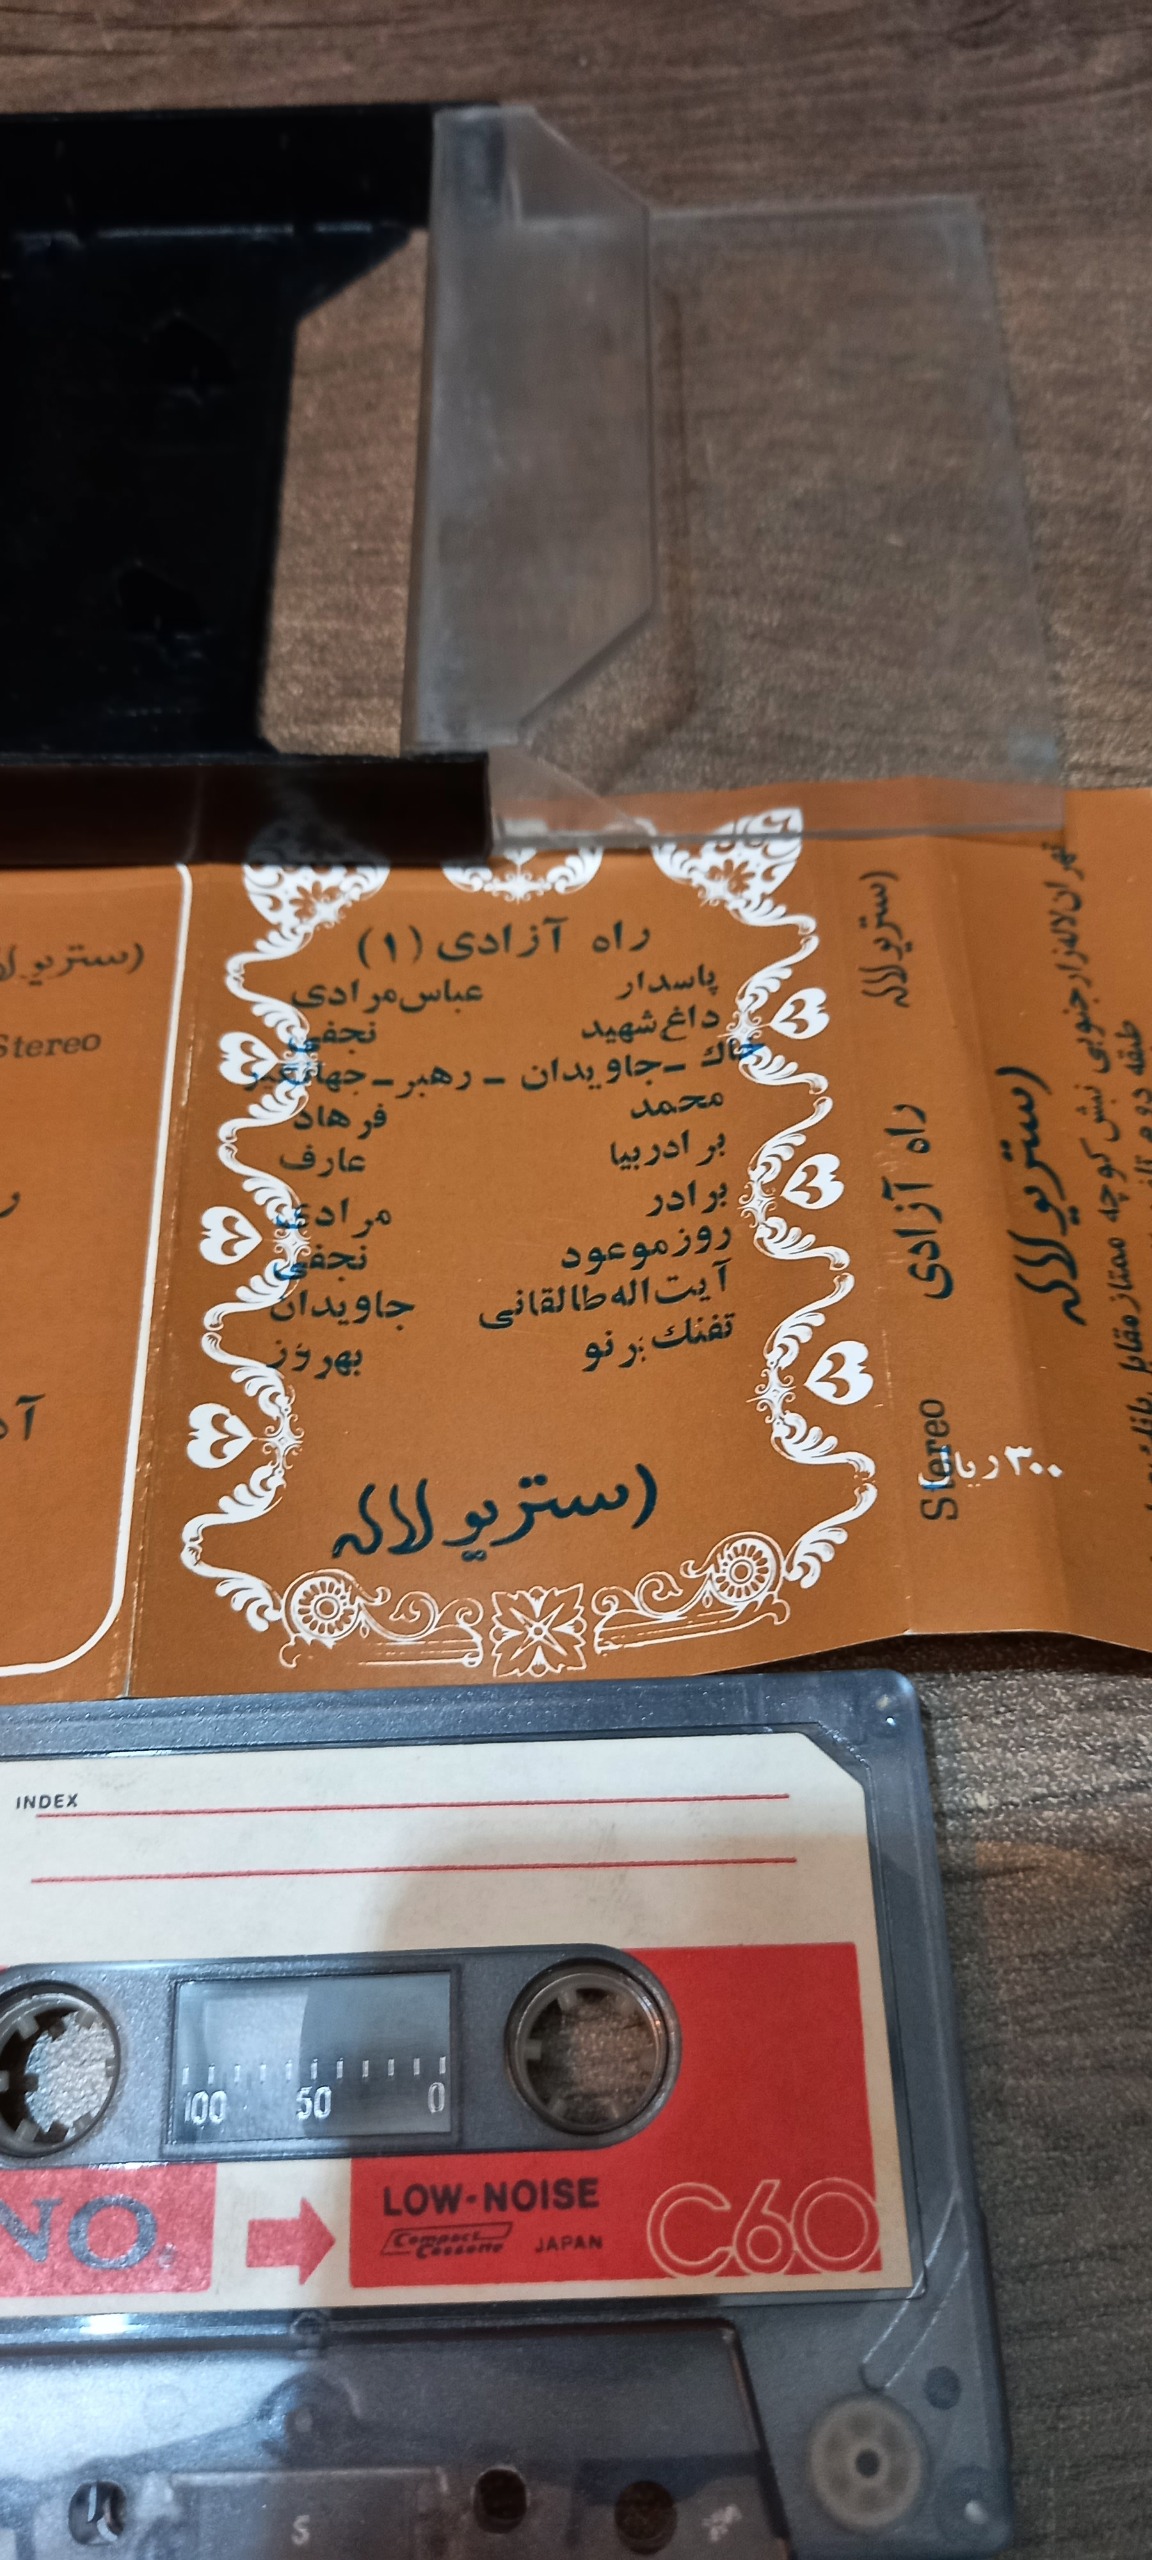 راه آزادی (۱)
پاسدار عباس مرادی
داغ شهید نجفی
خاك - جاویدان - رهبر - جهانگیر
محمد فرهاد
برادر بیا عارف
برادر مرادی
روز موعود نجفی
آیت اله طالقانی جاویدان
تفنك برنو بهروز
استریو لاله
استریو لاله
راه آزادی
Stereo
۳۰۰ ریال
استریو لاله
تهران لاله زار جنوبی نبش کوچه ممتاز مقابل
طبقه دوم
Stereo
INDEX
100 50 0
LOW-NOISE
Compact Cassette
JAPAN
C60